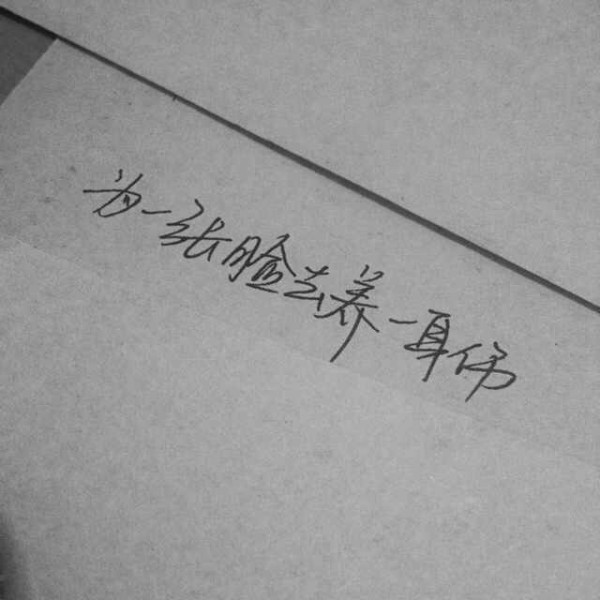 为一张脸去养一身伤